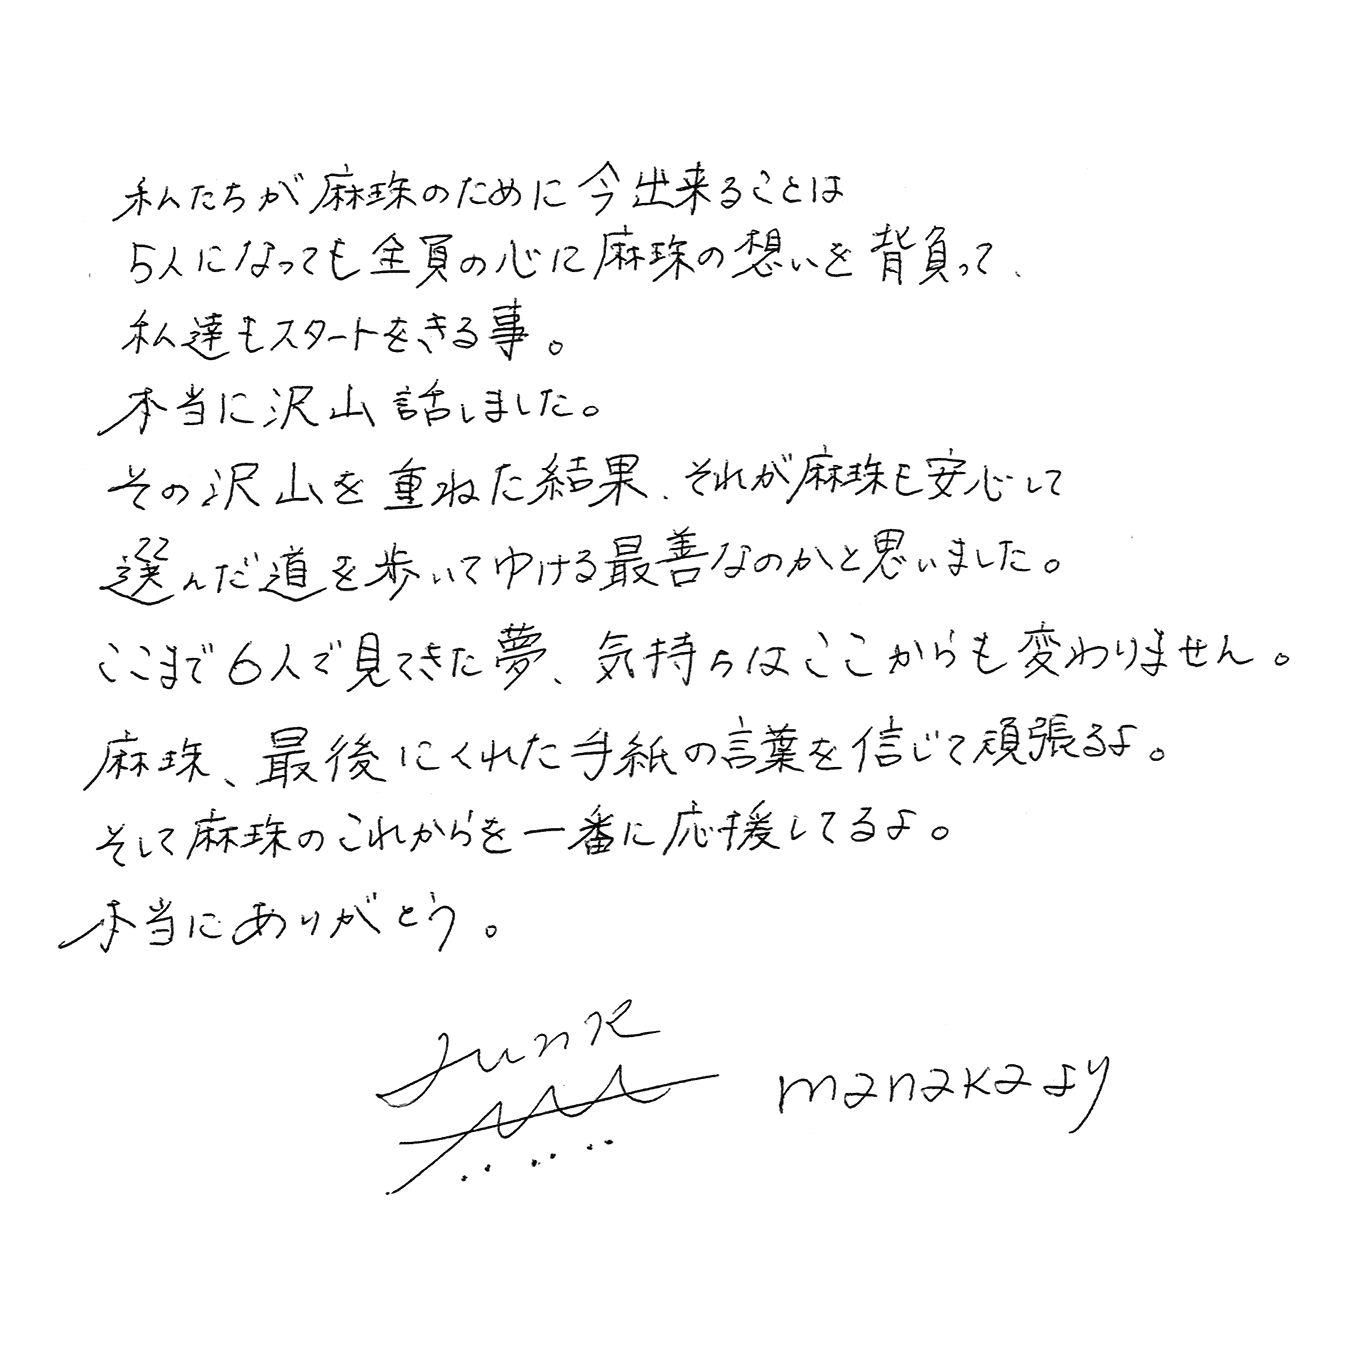 私たちが麻珠のために今出来ることは
5人になっても全員の心に麻珠の想いを背負って、
私達もスタートをきる事。
本当に沢山話しました。
その沢山を重ねた結果、それが麻珠も安心して
選んだ道を歩いてゆける最善なのかと思いました。
ここまで6人で見てきた夢、気持ちはここからも変わりません。
麻珠、最後にくれた手紙の言葉を信じて頑張るよ。
そして麻珠のこれからを一番に応援してるよ。
本当にありがとう。
manaka